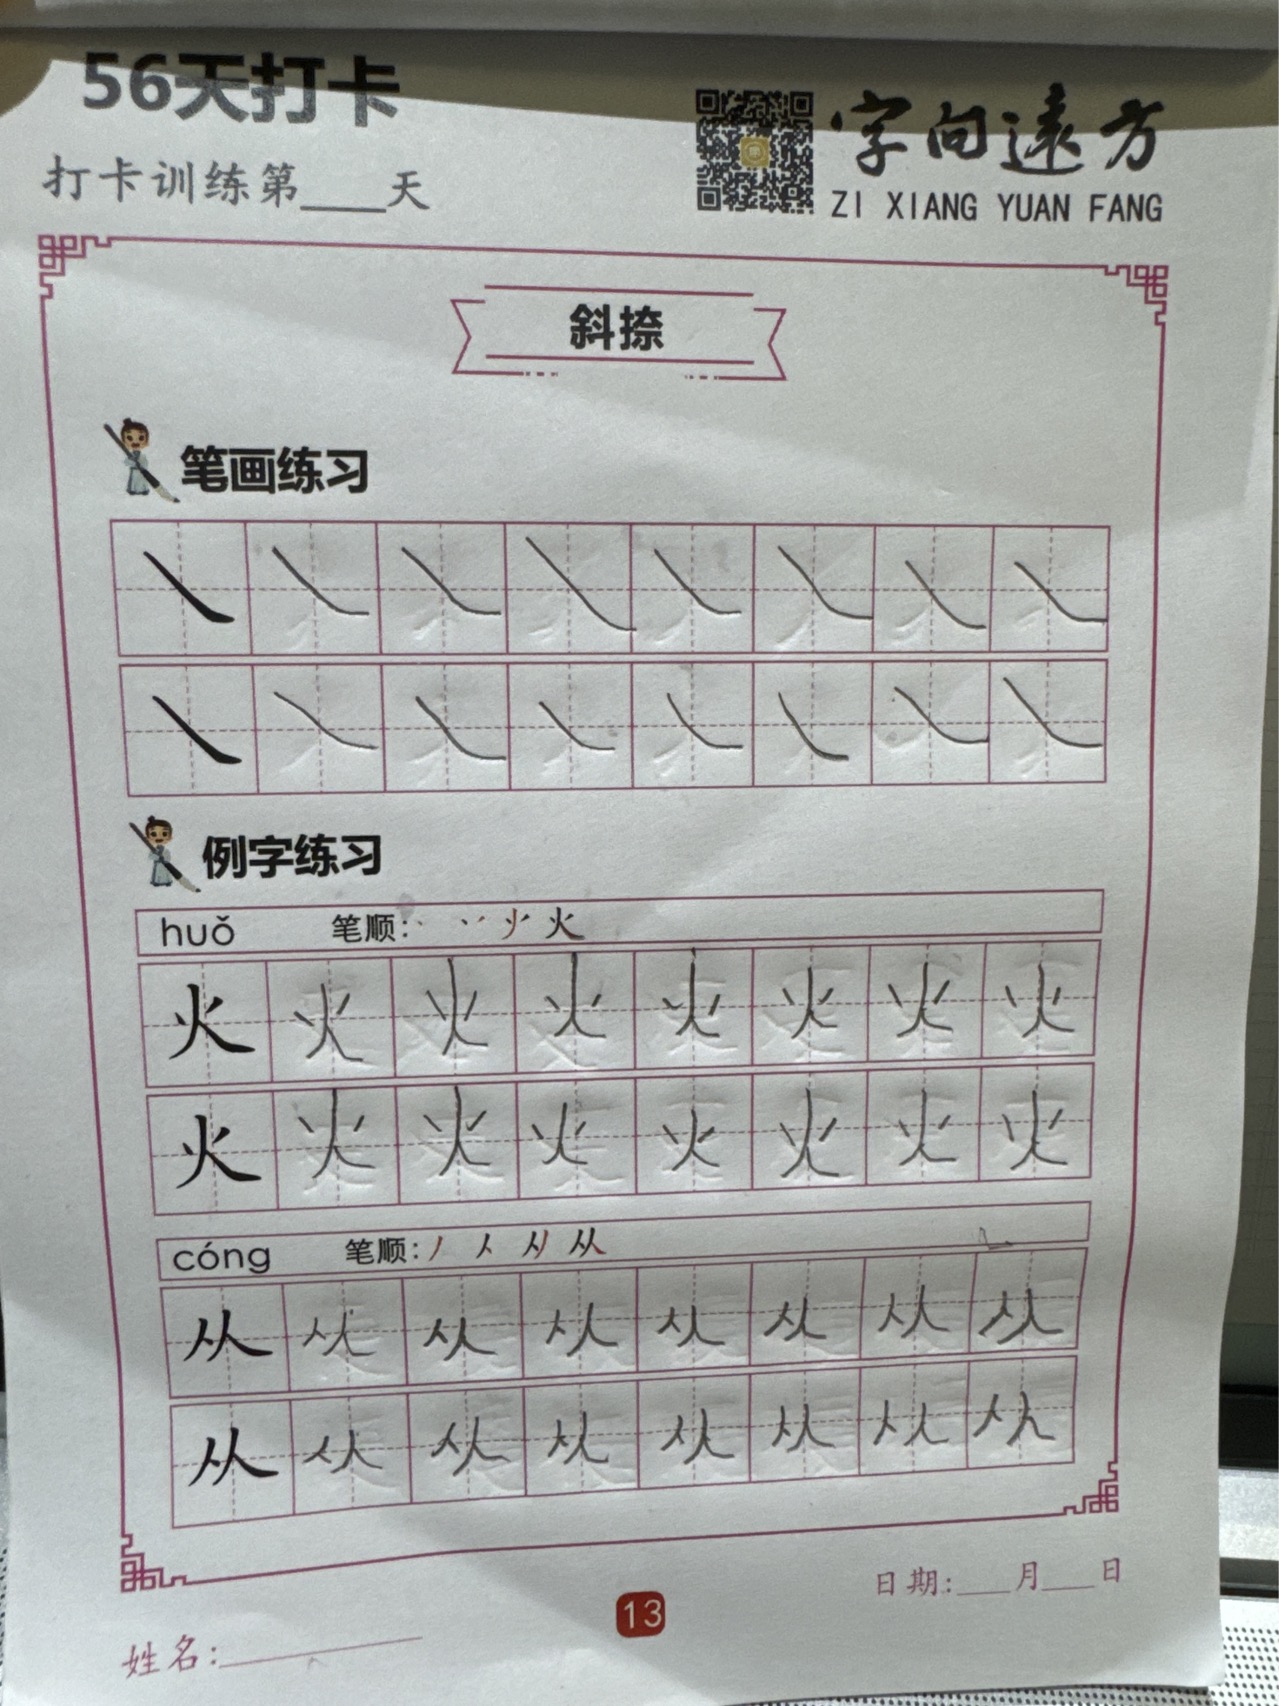 56天打卡
字向远方
打卡训练第____天
ZI XIANG YUAN FANG
斜捺
笔画练习
例字练习
huǒ 笔顺: 丶 丷 火 火
火 火 火 火 火 火 火 火
火 火 火 火 火 火 火 火
cóng 笔顺: 丿 人 从 从
从 从 从 从 从 从 从 从
从 从 从 从 从 从 从 从
日期:___月___日
13
姓名: